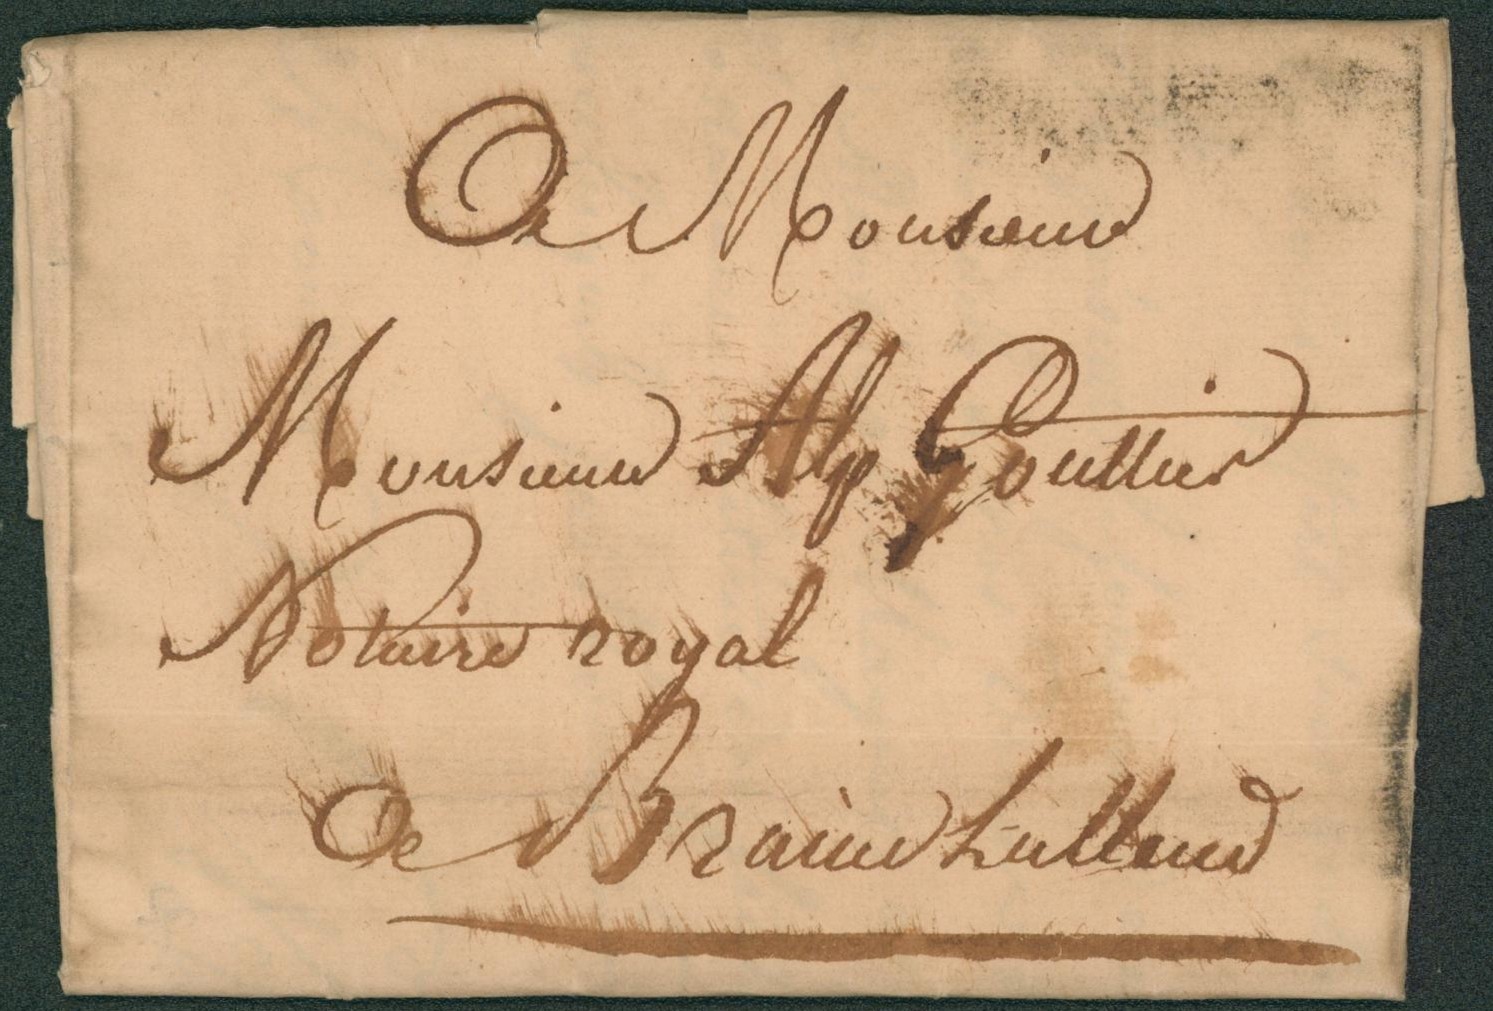 A Monsieur
Monsieur Alp Gouttier
Notaire royal
a Braine Lalleud